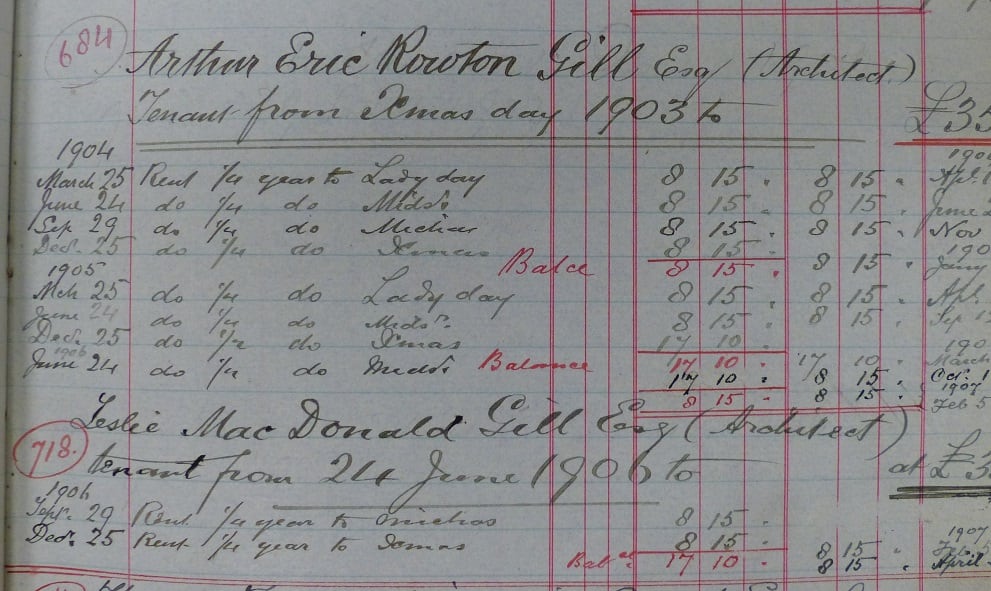 684
Arthur Eric Rowton Gill Esq (Architect)
Tenant from Xmas day 1903 to £35
1904 190
March 25 Rent 1/4 year to Lady day 8 15 " 8 15 " Apl. 1
June 24 do 1/4 do Mids. 8 15 " 8 15 " June 2
Sep 29 do 1/4 do Michas 8 15 " 8 15 " Nov
Decr. 25 do 1/4 do Xmas 8 15 " 190
Balce 8 15 " 8 15 " Jany
1905
Mch 25 do 1/4 do Lady day 8 15 " 8 15 " Apl.
June 24 do 1/4 do Mids. 8 15 " 8 15 " Sep 1
Decr. 25 do 1/2 do Xmas 17 10 " 190
Balance 17 10 " 17 10 " March
1906
June 24 do 1/4 do Mids. 17 10 " 8 15 " Oct. 1
1907
8 15 " 8 15 " Feb 5
Leslie Mac Donald Gill Esq (Architect)
718.
tenant from 24 June 1906 to at £3
1906
Sept. 29 Rent 1/4 year to michas 8 15 "
Decr. 25 Rent 1/4 year to Xmas 8 15 " 1907
Balce 17 10 " 8 15 " Feb. 5
8 15 " April